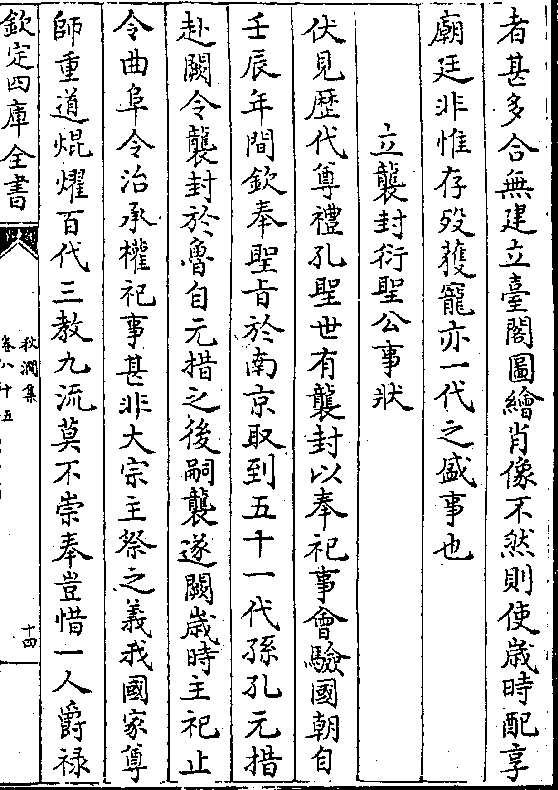 者甚多合無建立臺閣圖繪肖像不然則使歲時配享
廟廷非惟存殁獲寵亦一代之盛事也
立襲封衍聖公事狀
伏見歴代尊禮孔聖世有襲封以奉祀事會驗國朝自
壬辰年間欽奉聖旨於南京取到五十一代孫孔元措
赴闕令襲封於魯自元措之後嗣襲遂闕歲時主祀止
令曲阜令治承權祀事甚非大宗主祭之義我國家尊
師重道焜燿百代三教九流莫不崇奉豈惜一人爵禄
欽定四庫全書
秋澗集
卷八十五
十四